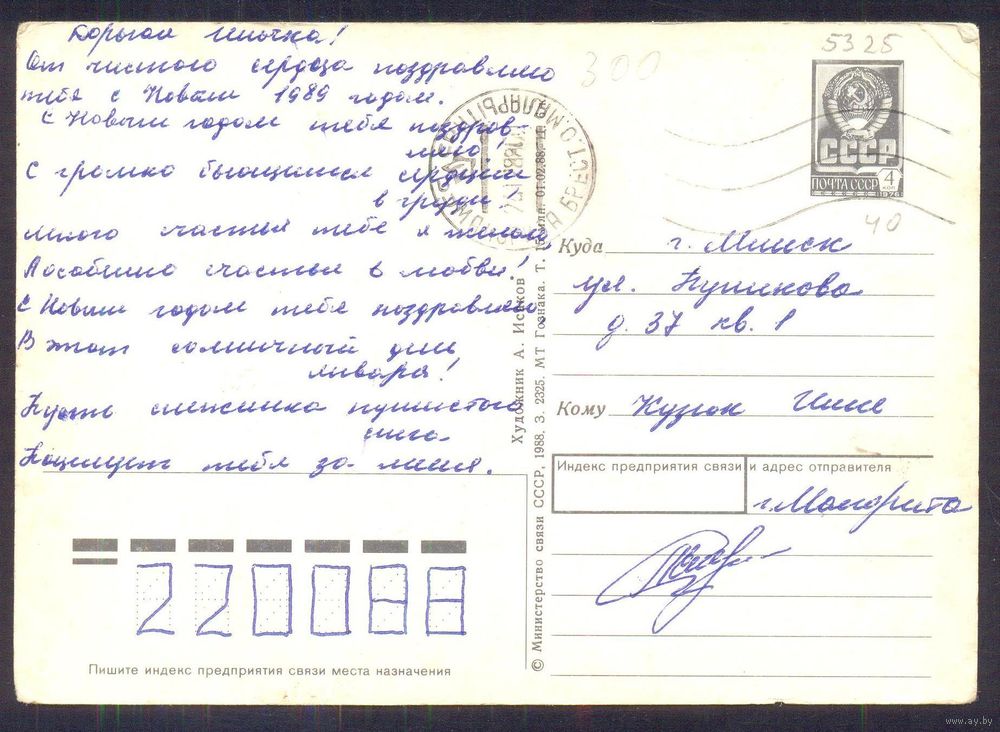 Дорогая Иночка!
От чистого сердца поздравляю
тебя с Новым 1989 годом.
С Новым годом тебя поздрав-
ляю!
С громко бьющимся сердцем
в груди!
Много счастья тебе я желаю
А особенно счастья в любви!
С Новым годом тебя поздравляю
В этот солнечный день
января!
Пусть снежинка пушистого
снега
Поцелует тебя за меня.
5325
300
СССР
ПОЧТА СССР 4 КОП
1976
40
Куда г. Минск
ул. Пушкова
д. 37 кв. 1
Кому Кузюк Инне
Индекс предприятия связи и адрес отправителя
г. Малорита
220088
Пишите индекс предприятия связи места назначения
Художник А. Исаков
© Министерство связи СССР, 1988. З. 2325. МТ Гознака. Т. 15 млн. 01.02.88.
www.ay.by